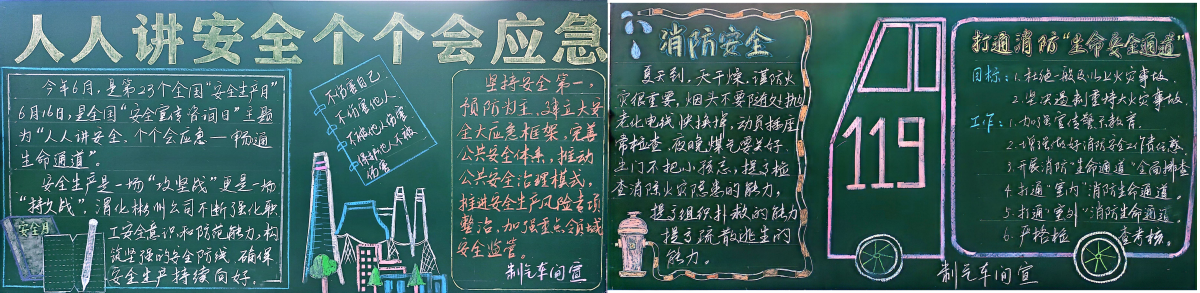 人人讲安全个个会应急
今年6月,是第23个全国"安全生产月"
6月16日,是全国"安全宣传咨询日"主题
为"人人讲安全、个个会应急—畅通
生命通道"。
安全生产是一场"攻坚战"更是一场
"持久战",渭化彬州公司不断强化职
工安全意识和防范能力,构
筑坚强的安全防线,确保
安全生产持续向好。
安全月
不伤害自己
不伤害他人
不被他人伤害
保护他人不被
伤害
坚持安全第一,
预防为主,建立大安
全大应急框架,完善
公共安全体系,推动
公共安全治理模式,
推进安全生产风险专项
整治,加强重点领域
安全监管。
制气车间宣
消防安全
夏天到,天干燥,谨防火
灾很重要,烟头不要随处抛
老化电线快换掉,动员插座
常检查,夜晚煤气要关好,
出门不把小孩忘,提高检
查消除火灾隐患的能力,
提高组织扑救的能力
提高疏散逃生的
能力。
119
打通消防"生命安全通道"
目标:1.杜绝一般及以上火灾事故。
2.坚决遏制重特大火灾事故。
工作:1.加强宣传警示教育。
2.增强做好消防安全工作责任感
3.开展消防"生命通道"全面排查
4.打通"室内"消防生命通道。
5.打通"室外"消防生命通道
6.严格检 查考核。
制气车间宣